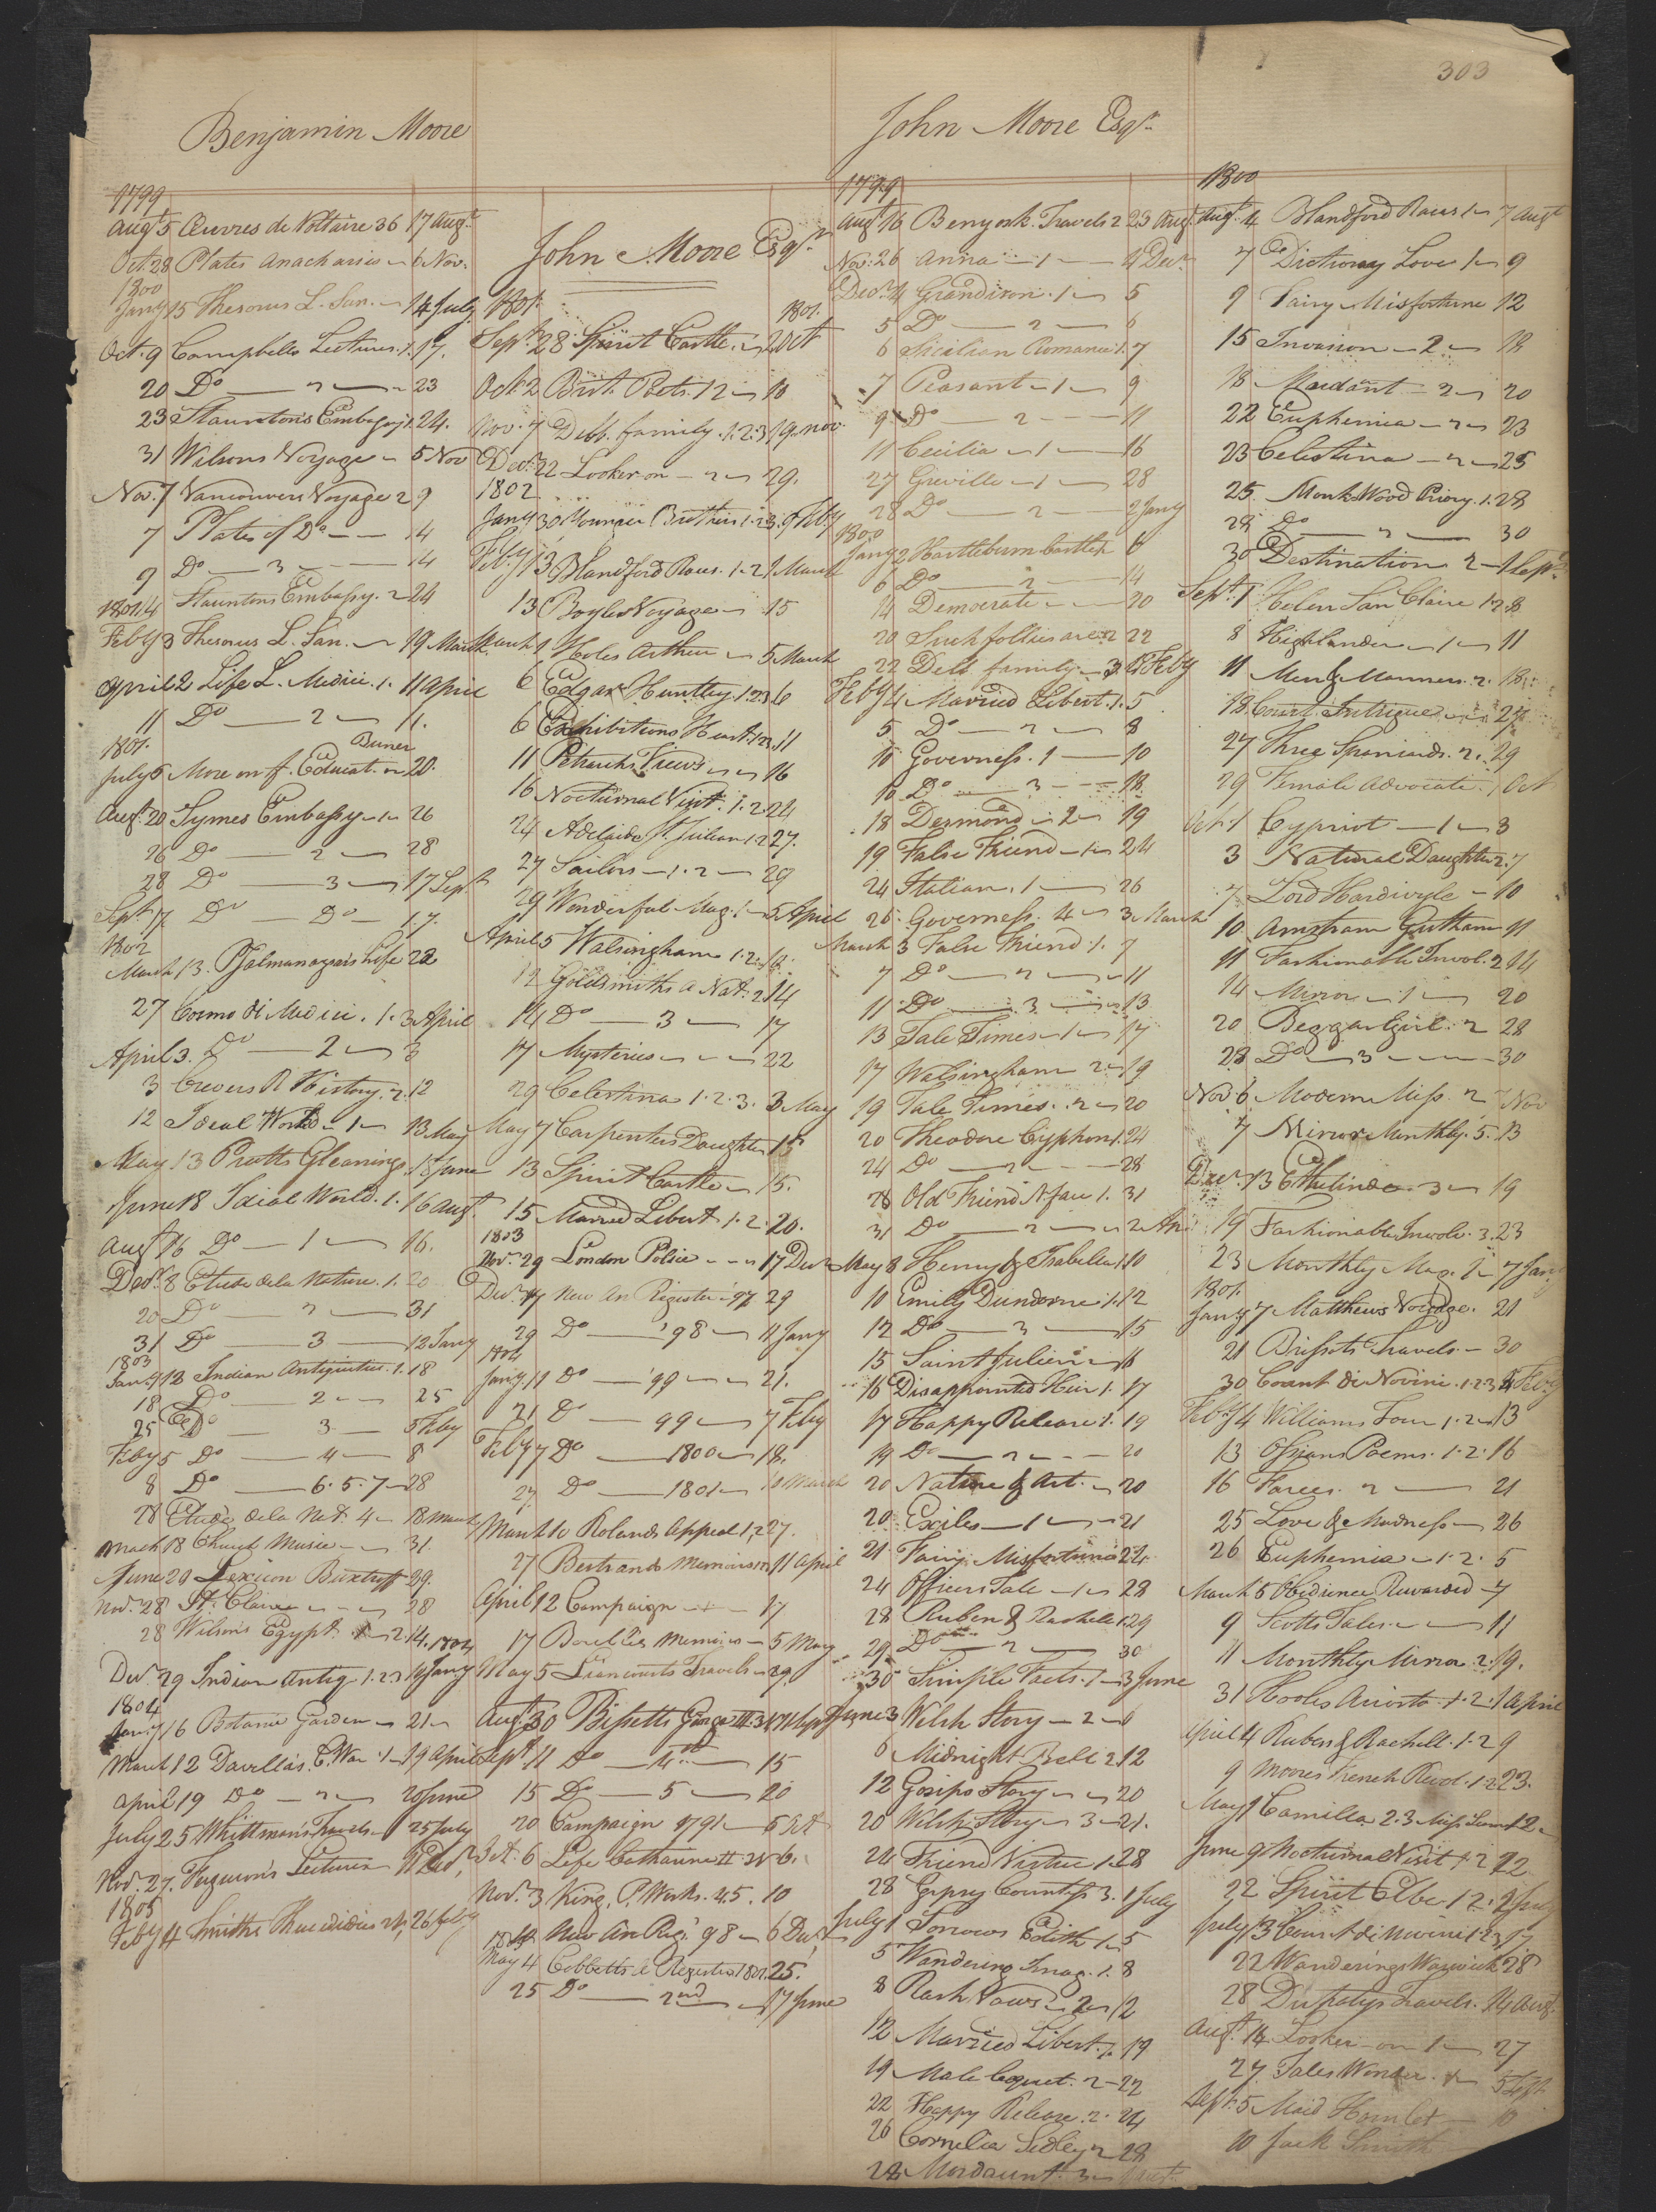 303
Benjamin Moore
1799
Augt 5 Œuvres de Voltaire 36 17 Augt
Oct. 28 Plates Anacharsis 6 Nov.
1800
Jany 15 Thesorus L. San. 14 July
Oct. 9 Campbells Lectures. 1. 17.
20 Do 2 23
23 Stauntons Embassy 1. 24.
31 Wilsons Voyage 5 Nov
Nov. 7 Vancouvers Voyage 2 9
7 Plates of Do 14
9 Do 3 14
14 Stauntons Embassy. 2 24
1801
Feby 3 Thesorus L. San. 19 March
April 2 Life L. Medici. 1. 11 April
11 Do 2 11.
1801.
July 6 More on f. Educat. 20.
Augt. 20 Symes Embassy 1 26
26 Do 2 28
28 Do 3 17 Sept
Sept 17 Do Do 17.
1802
March 13. Psalmanazars Life 22
27 Cosmo di Medici. 1. 3 April
April 3. Do 2 3
3 Crevers R History. 2. 12
12 Ideal World 1 13 May
May 13 Pratts Gleanings. 18 June
June 18 Ideal World. 1. 16 Augt.
Augt 16 Do 1 16.
Decr. 8 Etude de la Nature. 1. 20
20 Do 2 31
31 Do 3 12 Jany
1803
Jany 12 Indian Antiquities. 1. 18
18 Do 2 25
25 Do 3 5 Feby
Feby 5 Do 4 8
8 Do 6. 5. 7 28
28 Etude de la Nat. 4 18 March
March 18 Church Music 31
June 29 Lexicon Buxtroff 29.
Nov. 28 St. Claire 28
28 Wilsons Egypt. 2. 14. 1804
Decr. 29 Indian Antiq. 1. 2. 3 14 Jany
1804
Jany 16 Botanic Garden 21
March 12 Davilla's C. War. 1 19 April
April 19 Do 2 20 June
July 25 Whittmans Travels 25 July
Nov. 27. Ferguson's Lectures
1805
Feby 4 Smiths Thucidides 26 Feby
John Moore Esqr.
1801. 1801.
Sept. 28 Spirit Castle. 2 Oct
Oct. 2 Brit. Poets. 12 10
Nov. 7 Dell. family. 1. 2. 3 19 Nov.
Decr. 22 Looker on 2 29.
1802
Jany 30 Younger Brothers 1. 2. 3. 9 Feby
Feby 13 Blandford Races. 1. 2 1 March
13 Boyles Voyages 15
March 1 Holes Arthur 5 March
6 Edgar Huntley. 1. 2. 3 6
6 Exhibitions Heart. 1. 2. 3. 11
11 Petrarchs Views 16
16 Nocturnal Visit. 1. 2. 24
24 Adelaide St. Julian 1. 2 27.
27 Sailors 1. 2 29
29 Wonderful Mag. 1 5 April
April 5 Walsingham 1. 2. 12.
12 Goldsmiths A Nat. 2 14
14 Do 3 17
17 Mysteries 22
29 Celestina 1. 2. 3. 3 May
May 7 Carpenters Daughter 15
13 Spirit Castle 15.
15 Married Libert. 1. 2. 20.
1803
Nov. 29 London Police 17 Decr
Decr. 17 New An Register '97 29
29 Do '98 11 Jany
1804
Jany 11 Do '99 21.
21 Do 99 7 Feby
Feby 7 Do 1800 18.
27 Do 1801 10 March
March 10 Rolands Appeal 1, 2 27.
27 Bertrands Memoirs 11 April
April 12 Campaign 17
17 Bouilles Memoirs 5 May
May 5 Liancourts Travels 29.
Augt. 30 Bissetts George III. 3 11 Sept
Sept 11 Do 4th 15
15 Do 5 20
20 Campaign 1791 6 Oct
Oct. 6 Life Catharine II. 6.
Nov. 3 King. P. Works. 4. 5. 10
19 New An Reg. 98 6 Decr
May 4 Cobbetts A Register 1801. 25.
25 Do 2nd 17 June
John Moore Esqr.
1799
Augt 16 Benyorsk. Travels 2 23 Augt.
Nov. 26 Anna 1 4 Decr.
Decr. 4 Grandison. 1 5
5 Do 2 6
6 Sicilian Romance 1. 7
7 Peasant 1 9
9 Do 2 11
11 Cecilia 1 16
27 Greville 1 28
28 Do 2 2 Jany
1800
Jany 2 Hartleburn Castle 1 6
6 Do 2 14
14 Democrate 20
20 Such follies are 2 22
22 Dell family 3 4 Feby
Feby 4 Married Libert. 1. 5
5 Do 2 8
10 Governess. 1 10
10 Do 3 18
18 Desmond 2 19
19 False Friend 1 24
24 Italian. 1 26
26. Governess. 4 3 March
March 3 False Friend 1. 7
7 Do 2 11
11 Do 3 13
13 Tale Times 1 17
17 Walsingham 2 19
19 Tale Times. 2 20
20 Theodore Cyphon 1. 24
24 Do 2 28
28 Old Friend N face 1. 31
31 Do 2
May 8 Henry & Isabella 1. 10
10 Emily Dundorne 1. 12
12 Do 3 15
15 Saint Julien 16
16 Disappointed Heir 1. 17
17 Happy Release 1. 19
19 Do 2 20
20 Nature & Art. 20
20 Exiles 1 21
21 Fairy Misfortunes 24
24 Officers Tale 1 28
28 Ruben & Rachell 1 29
29 Do 2 30
30 Simple Facts. 1 3 June
June 3 Welsh Story 2 6
6 Midnight Bell 2. 12
12 Gosips Story 20
20 Welsh Story 3 21.
24 Friend Virtue 1. 28
28 Gypsy Countess 3. 1 July
July 1 Sorrows Edith 1 5
5 Wandering Imag. 1. 8
8 Rash Vows 2 12
12 Married Libert. 1. 19
19 Male Coquet. 2 22
22 Happy Release. 2. 24
26 Cornelia Sedley 2 28
28 Mordaunt. 3
1800
Augt. 4 Blandford Races 1 7 Augt
7 Dictionary Love 1 9
9 Fairy Misfortune 12
15 Invasion 2 18
18 Mordant 2 20
22 Euphemia 2 23
23 Celestina 2 25
25. Monk Wood Priory. 1. 28
28 Do 2 30
30 Destination 2 1 Sept
Sept. 1 Helen San Claire 1. 2. 8
8 Highlander 1 11
11 Men & Manners. 2. 18
18 Court Intrigue 27
27 Three Spaniards. 2. 29
29 Female Advocate. 1 Oct
Oct. 1 Cypriot 1 3
3 Natural Daughter 2. 7
7 Lord Hardivyle 10
10 Amztram Gutham 11
11 Fashionable Invol. 2 14
14 Mirror 1 20
20 Beggar Girl. 2 28
28 Do 3 30
Nov 6 Modern Miss. 2 7 Nov
7 Mirror Monthly. 5. 13
Decr. 13 Ethelinda 3 19
19 Fashionable Involv. 3. 23
23 Monthly Mag. 7 Jany
1801.
Jany 7 Matthews Voyage. 21
21 Brissots Travels. 30
30 Count Di Novini. 1. 2. 3 4 Feby
Feby 4 Williams Tour 1. 2 13
13 Ossians Poems. 1. 2. 16
16 Farces. 2 21
25 Love & Madness 26
26 Euphemia 1. 2. 5
March 5 Obedience Rewarded 7
9 Scotts Tales 11
11 Monthly Mirror. 2. 19.
31 Hooles Ariosto. 1. 2. 1 April
April 4 Ruben & Rachell. 1. 2 9
9 Moores French Revol. 1. 2 23.
May 1 Camilla. 2. 3 12
June 9 Nocturnal Visit 1. 2 22
22 Spirit Elbe 1. 2. 2 July
July 13 Count di Novini 1. 2. 3. 17
22 Wanderings Warwick 28
28 Dupatys Travels. 14 Augt.
Augt. 14 Looker-on 1 27
27 Tales Wonder. 5 Sept
Sept. 5 Maid Hamlet 10
10 Jack Smith